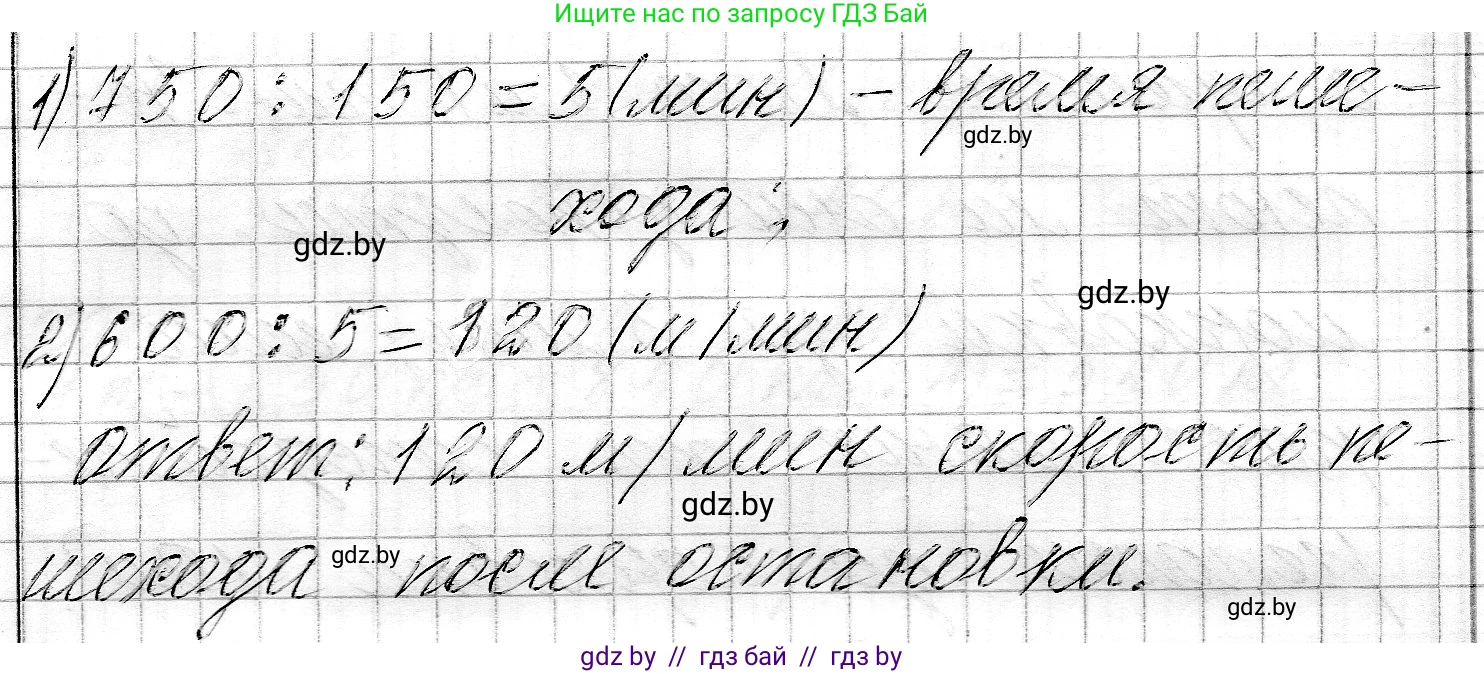 Ищите нас по запросу ГДЗ Бай
1) 750 : 150 = 5 (мин) – время пеше-
gdz.by
хода;
gdz.by
gdz.by
2) 600 : 5 = 120 (м/мин)
ответ: 120 м/мин скорость пе-
gdz.by
шехода после остановки.
gdz.by
gdz.by
gdz.by // гдз бай // гдз by